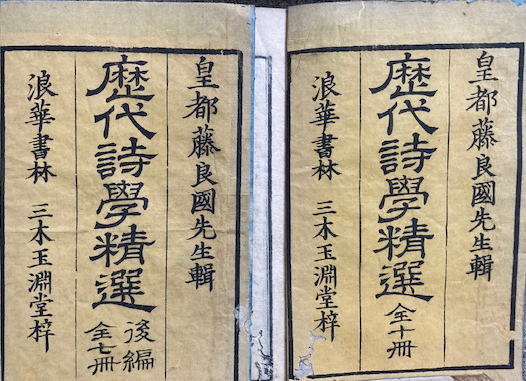 皇都藤良國先生輯
歷代詩學精選
全十冊
浪華書林 三木玉淵堂梓
皇都藤良國先生輯
歷代詩學精選
後編
全七冊
浪華書林 三木玉淵堂梓